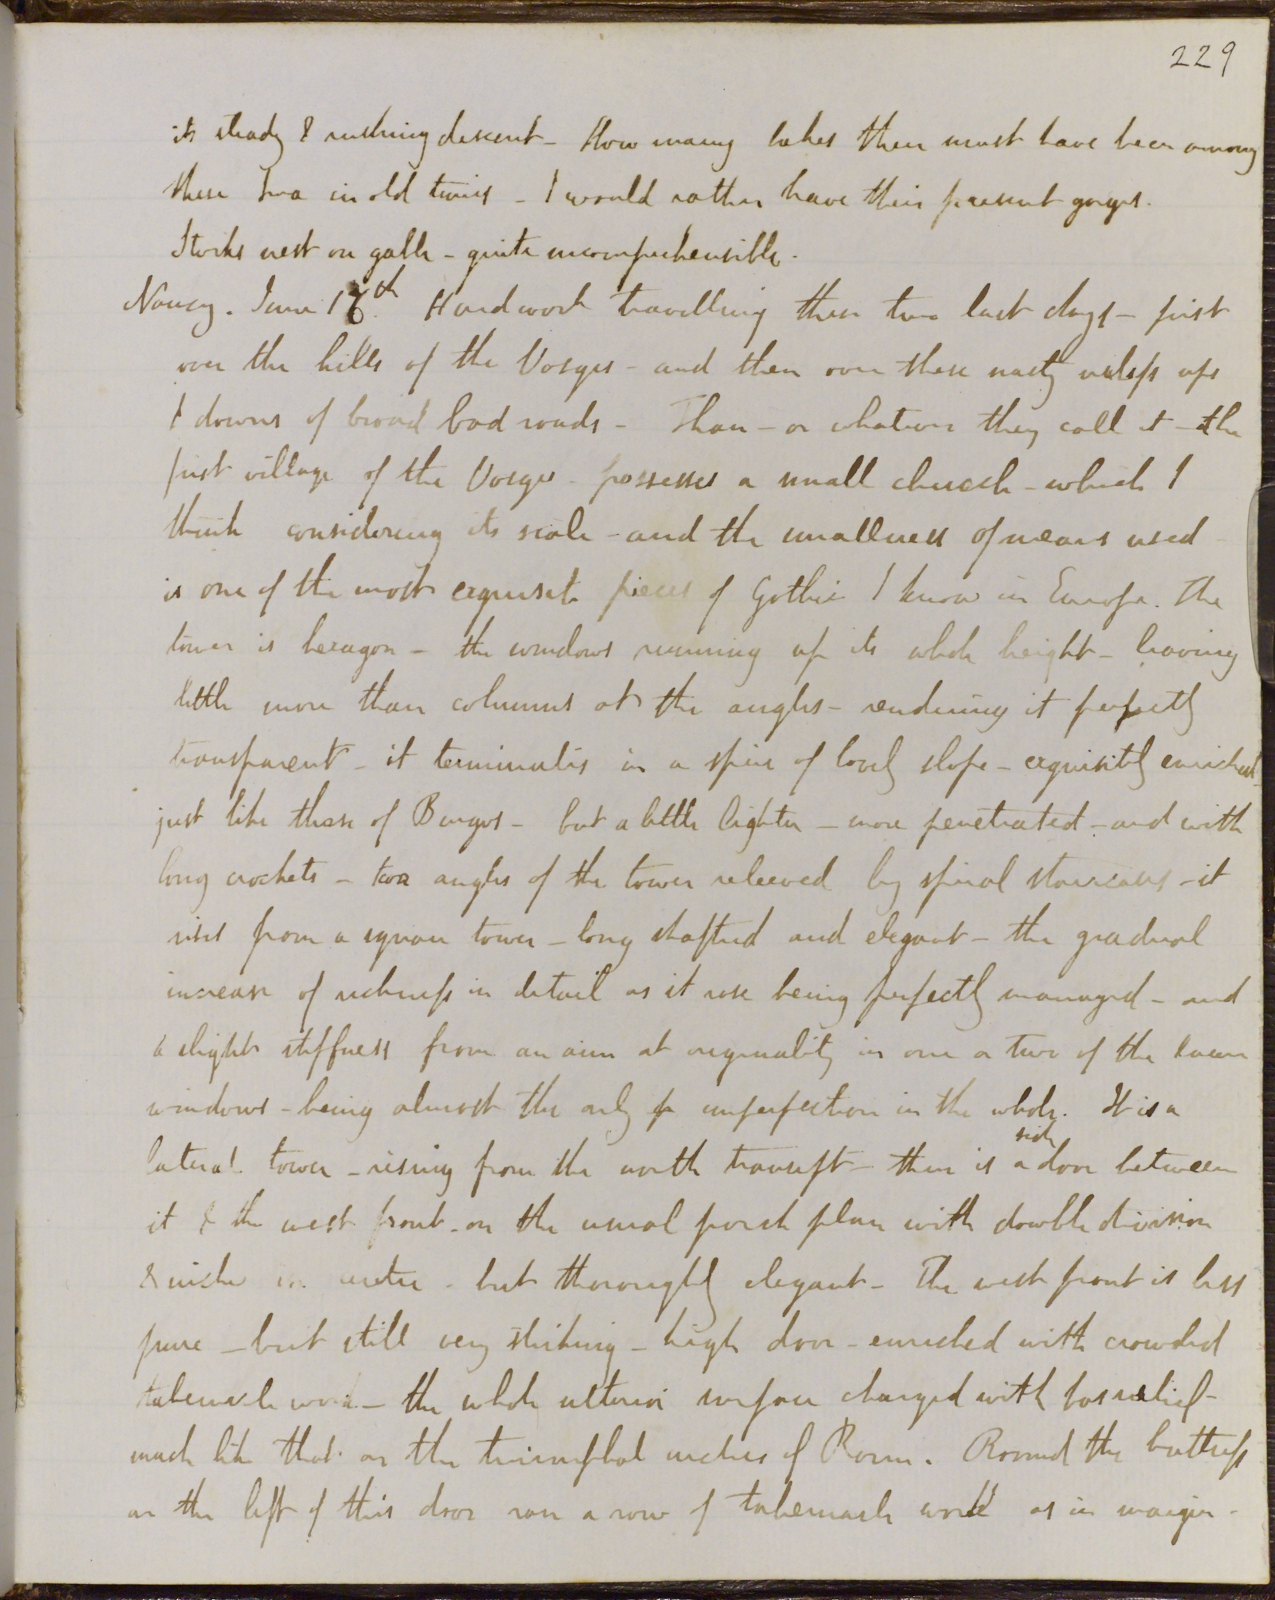 229
its steady & rushing descent - How many lakes there must have been among
these Jura in old times - I would rather have their present gorges.
Storks nest on gable - quite incomprehensible.
Nancy. June 16th. Hard work travelling these two last days - first
over the hills of the Vosges - and then over these nasty ups
& downs of broad bad roads - Than - or whatever they call it - the
first village of the Vosges - possesses a small church - which I
think considering its scale - and the smallness of means used -
is one of the most exquisite pieces of Gothic I know in Europe. The
tower is hexagon - the windows running up its whole height - leaving
little more than columns at the angles - rendering it perfectly
transparent - it terminates in a spire of lovely slope - exquisitely enriched
just like those of Burgos - but a little lighter - more penetrated - and with
long crockets - two angles of the tower relieved by spiral staircases - it
rises from a square tower - long shafted and elegant - the gradual
increase of richness in detail as it rose being perfectly managed - and
a slight stiffness from an aim at originality in one or two of the lower
windows - being almost the only imperfection in the whole. It is a
lateral tower - rising from the north transept - there is a side door between
it & the west front - on the usual porch plan with double division
& niche in centre - but thoroughly elegant - The west front is less
pure - but still very striking - high door - enriched with crowded
tabernacle work - the whole interior surface charged with bas relief -
much like that on the triumphal arches of Rome. Round the buttress
on the left of this door ran a row of tabernacle work as in margin -